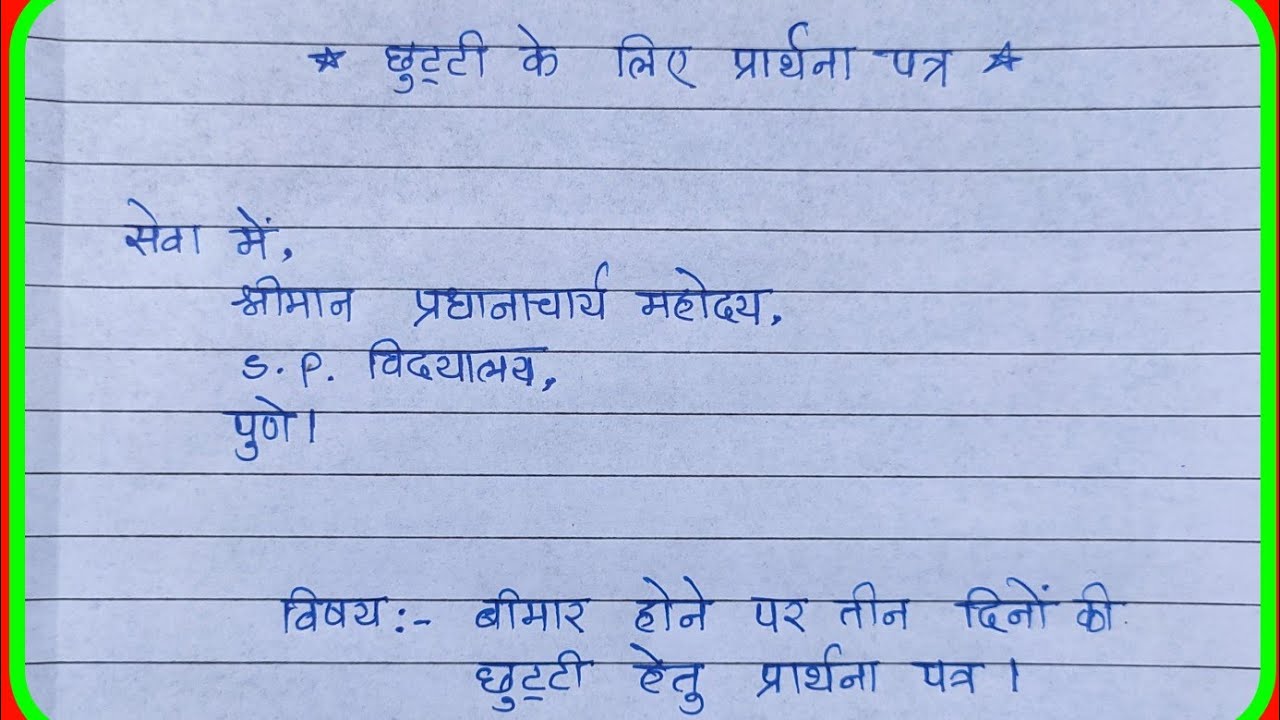 ☆ छुट्टी के लिए प्रार्थना पत्र ☆
सेवा में,
श्रीमान प्रधानाचार्य महोदय,
S. P. विद्यालय,
पुणे।
विषय:- बीमार होने पर तीन दिनों की
छुट्टी हेतु प्रार्थना पत्र ।